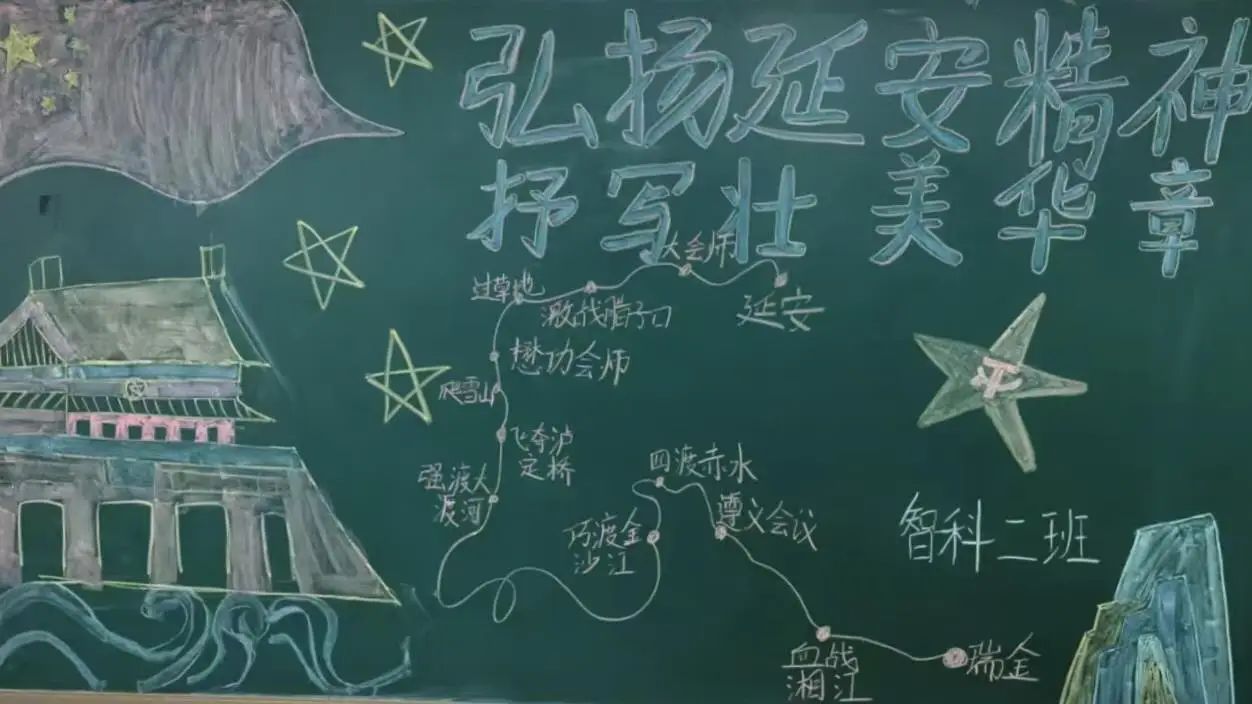 弘扬延安精神
抒写壮美华章
大会师
过草地
激战腊子口
延安
懋功会师
爬雪山
飞夺泸
定桥
强渡大
渡河
四渡赤水
遵义会议
巧渡金
沙江
智科二班
血战
湘江
瑞金